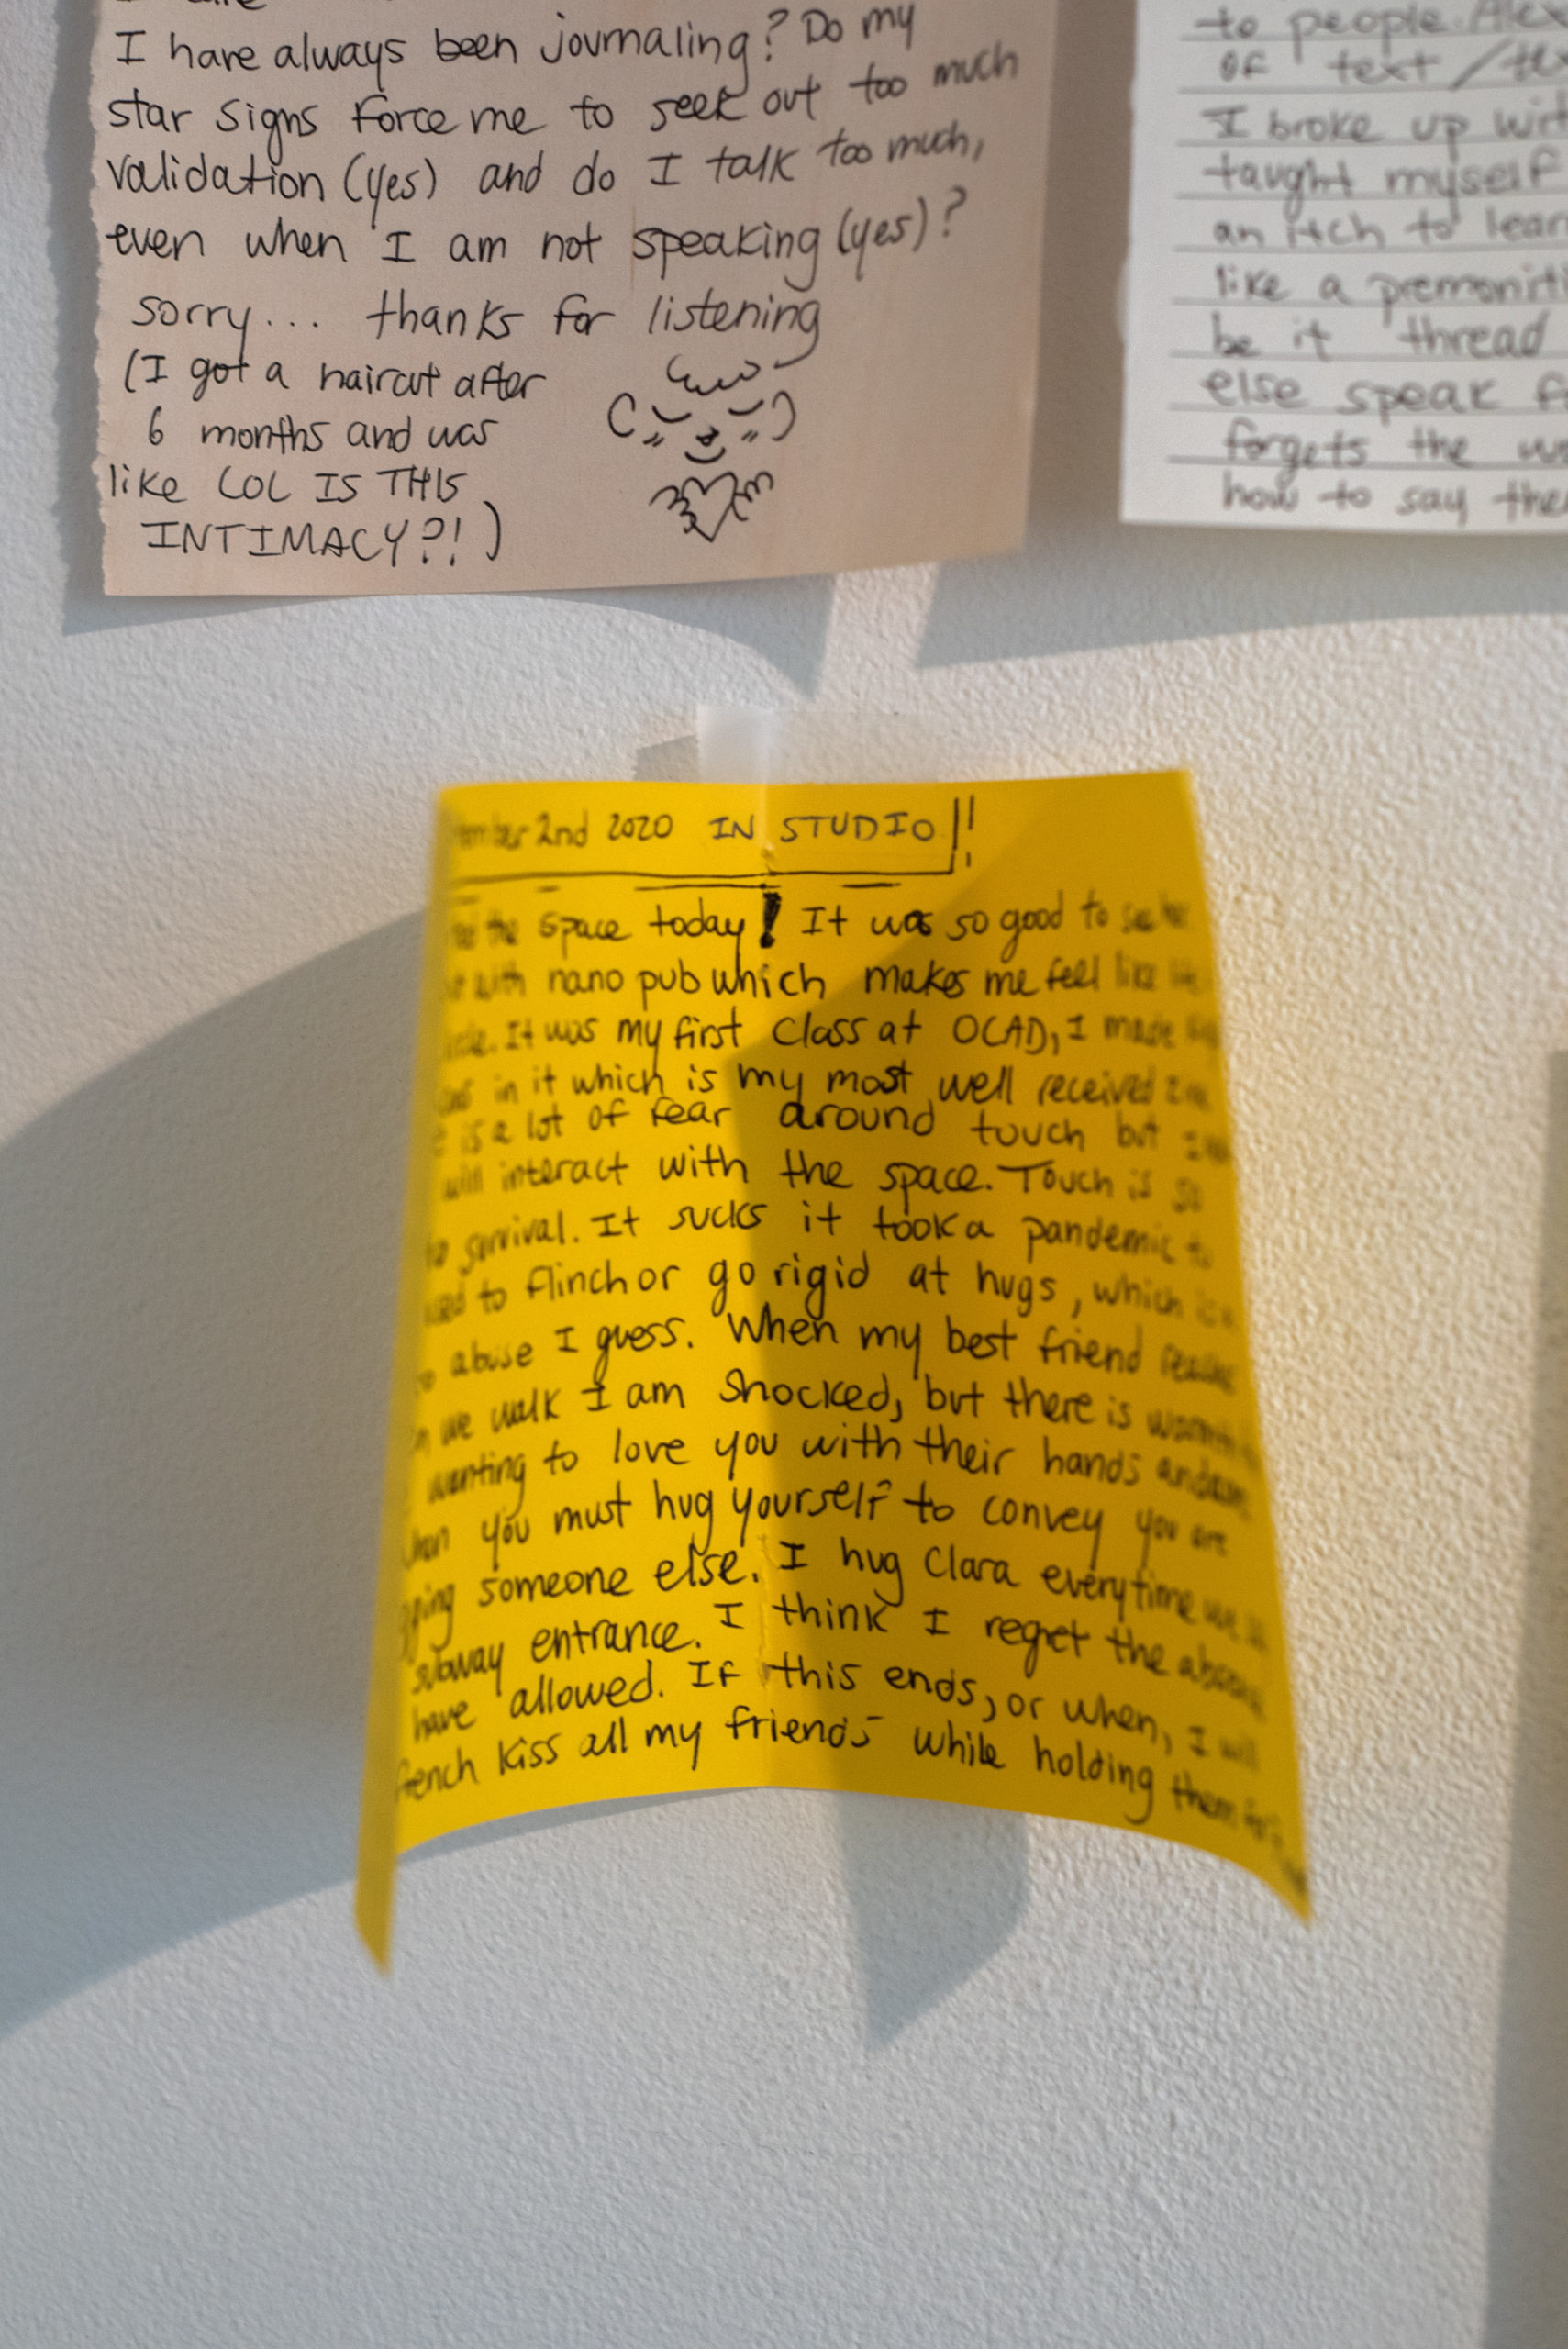 I have always been journaling? Do my
star signs force me to seek out too much
validation (yes) and do I talk too much,
even when I am not speaking (yes)?
sorry... thanks for listening
(I got a haircut after
6 months and was
like LOL IS THIS
INTIMACY?!)
to people.
of text/
I broke up
taught myself
an itch to learn
like a
be it thread
else speak
forgets the
how to say
2nd 2020 IN STUDIO!!
the space today! It was so good to see her
with nano pub which makes me feel like
It was my first class at OCAD, I made
in it which is my most well received
is a lot of fear around touch but
will interact with the space. Touch is so
to survival. It sucks it took a pandemic to
used to flinch or go rigid at hugs, which is
abuse I guess. When my best friend
we walk I am shocked, but there is warmth
wanting to love you with their hands
when you must hug yourself to convey you are
someone else. I hug Clara everytime we
subway entrance. I think I regret the
have allowed. If this ends, or when, I will
french kiss all my friends while holding them